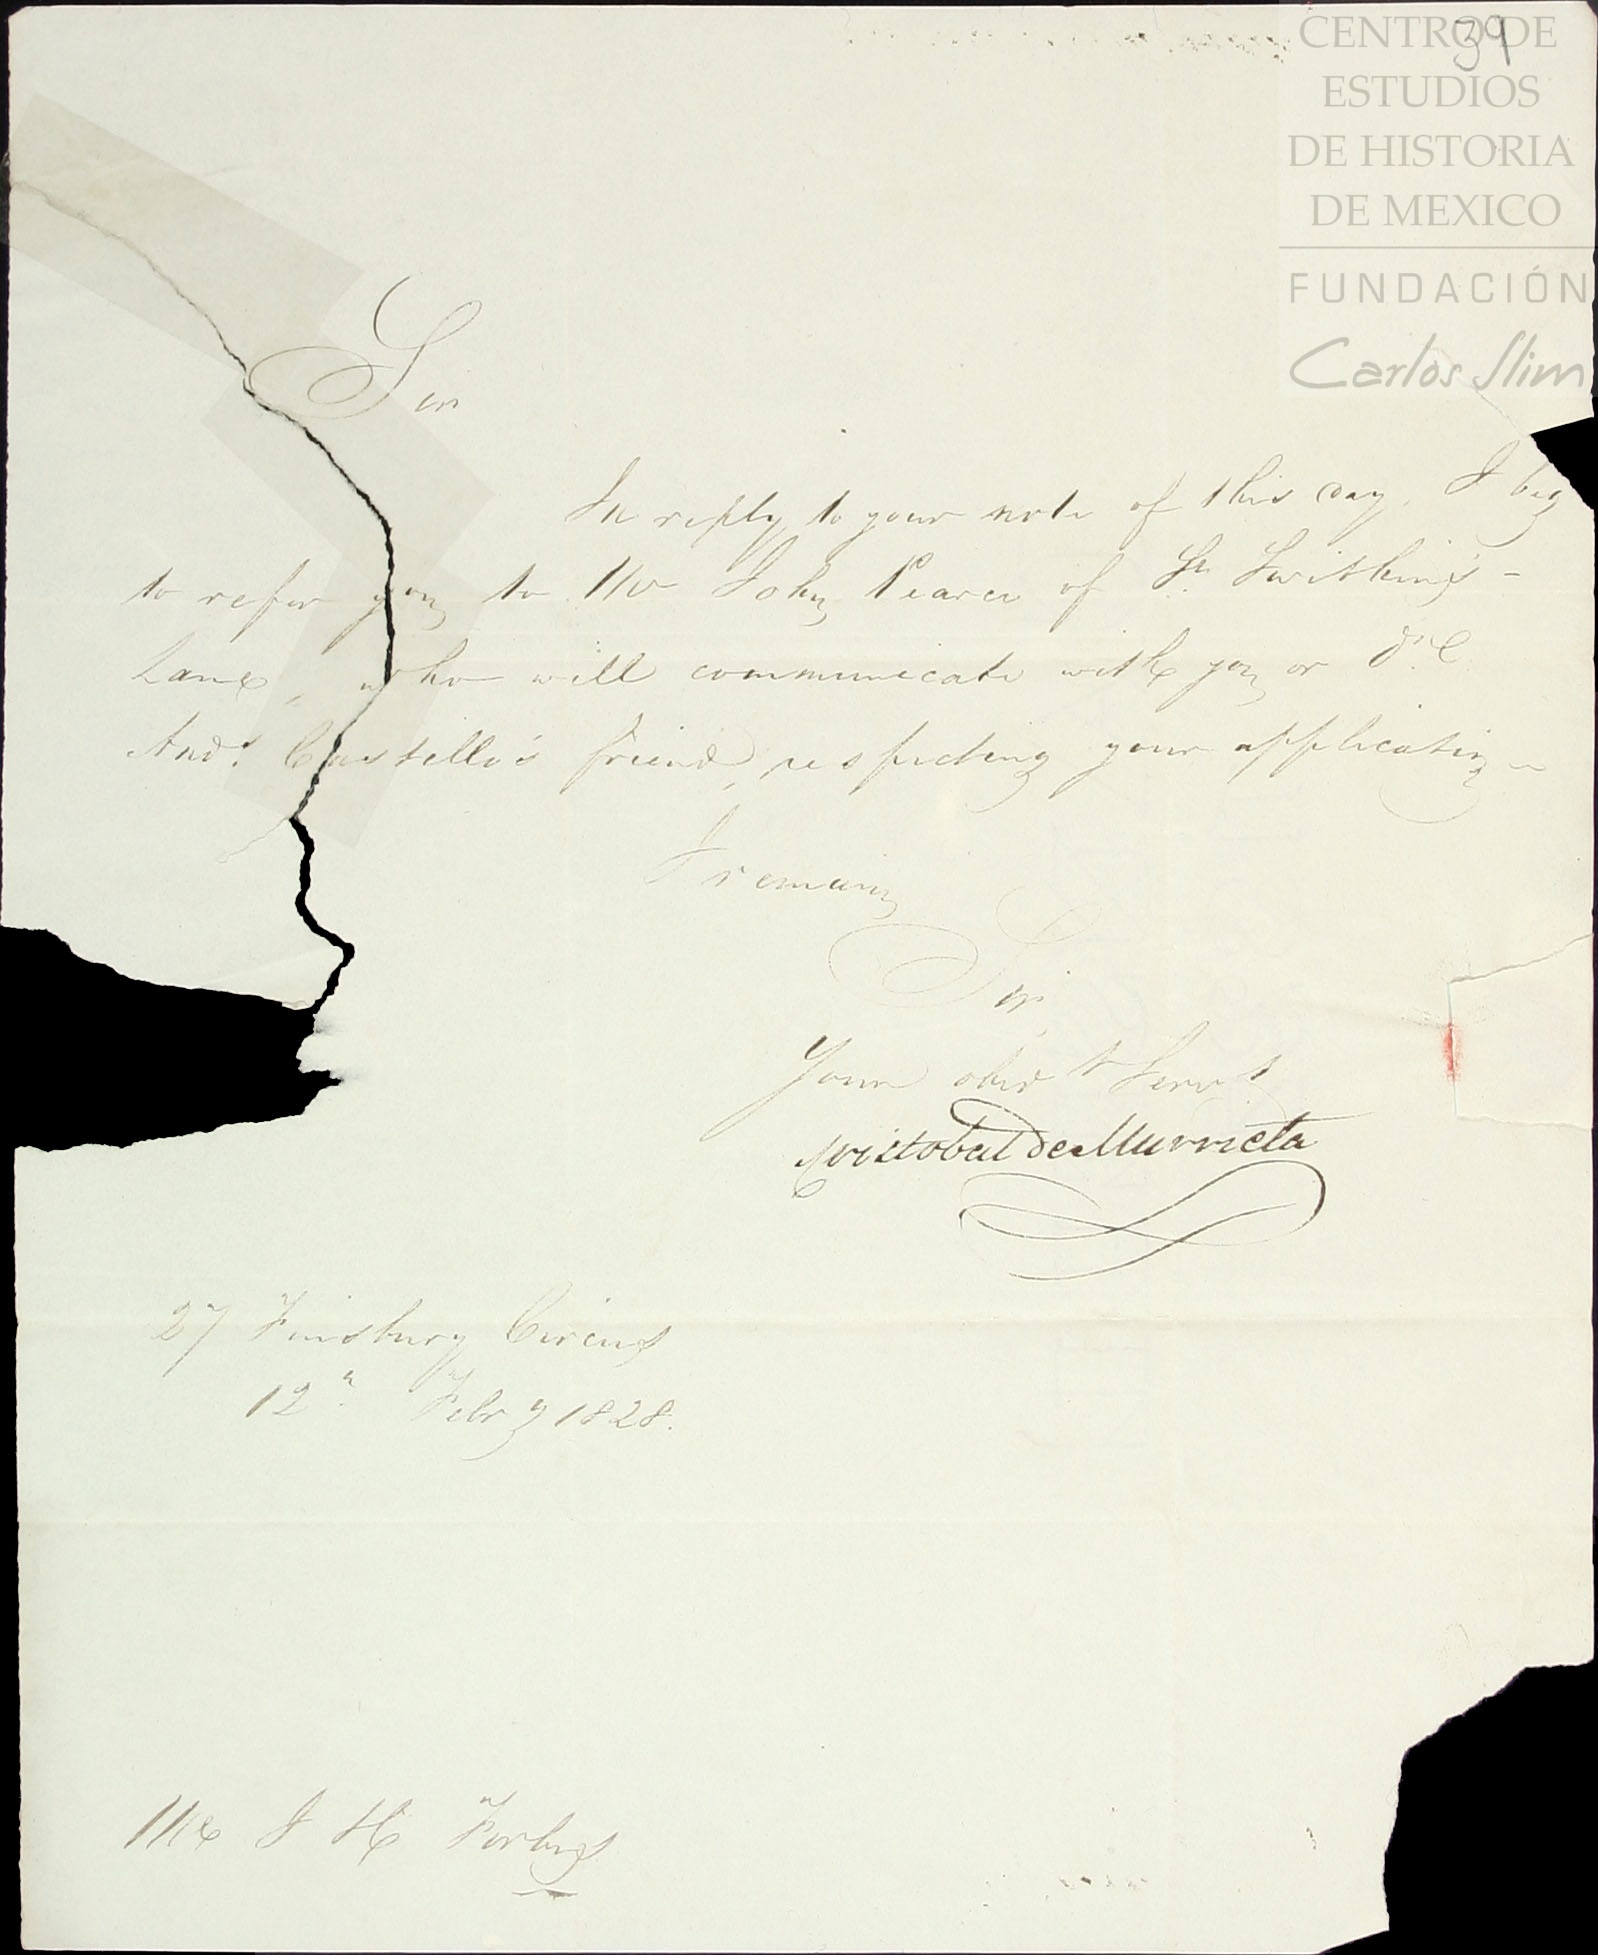 39
CENTRO DE
ESTUDIOS
DE HISTORIA
DE MEXICO
FUNDACIÓN
Carlos Slim
Sir
In reply to your note of this day, I beg
to refer you to Mr John Pearce of St. Swithin's -
Lane, who will communicate with you or
Castillo's friend, respecting your application
I remain
Sir,
Your obedt Servt
Cristobal de Murrieta
27 Finsbury Circus
12th Febry 1828.
Mr J H Forbes